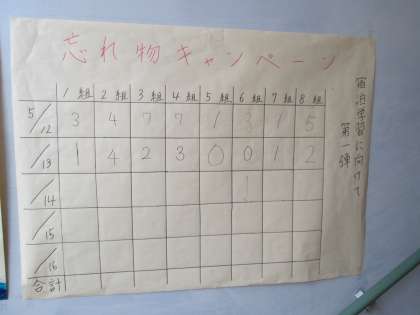 忘れ物キャンペーン
1組 2組 3組 4組 5組 6組 7組 8組
5/12 3 4 7 7 1 3 1 5
/13 1 4 2 3 0 0 1 2
/14 1
/15
/16
合計
宿泊学習に向けて
第一弾